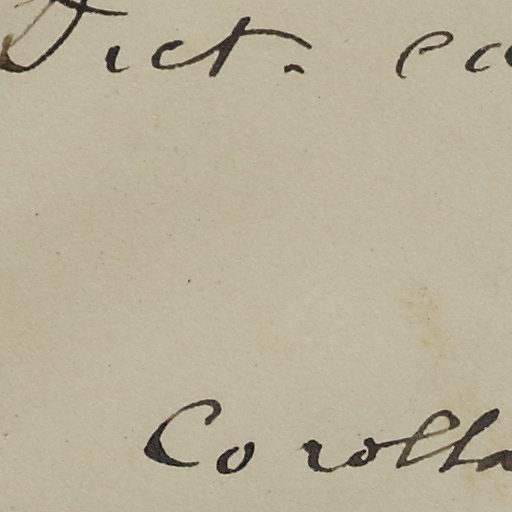 Dict. ed
Corolla